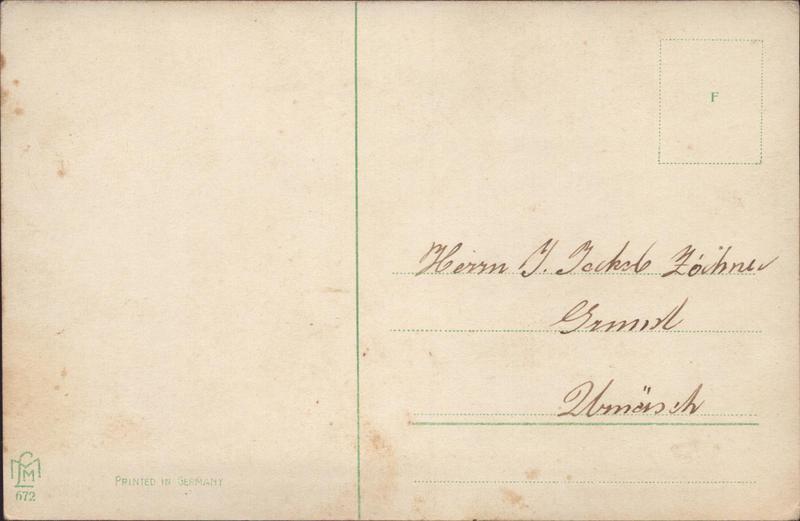 F
Herrn J. Jakob Zähner
Grund
Urnäsch
M
672
PRINTED IN GERMANY